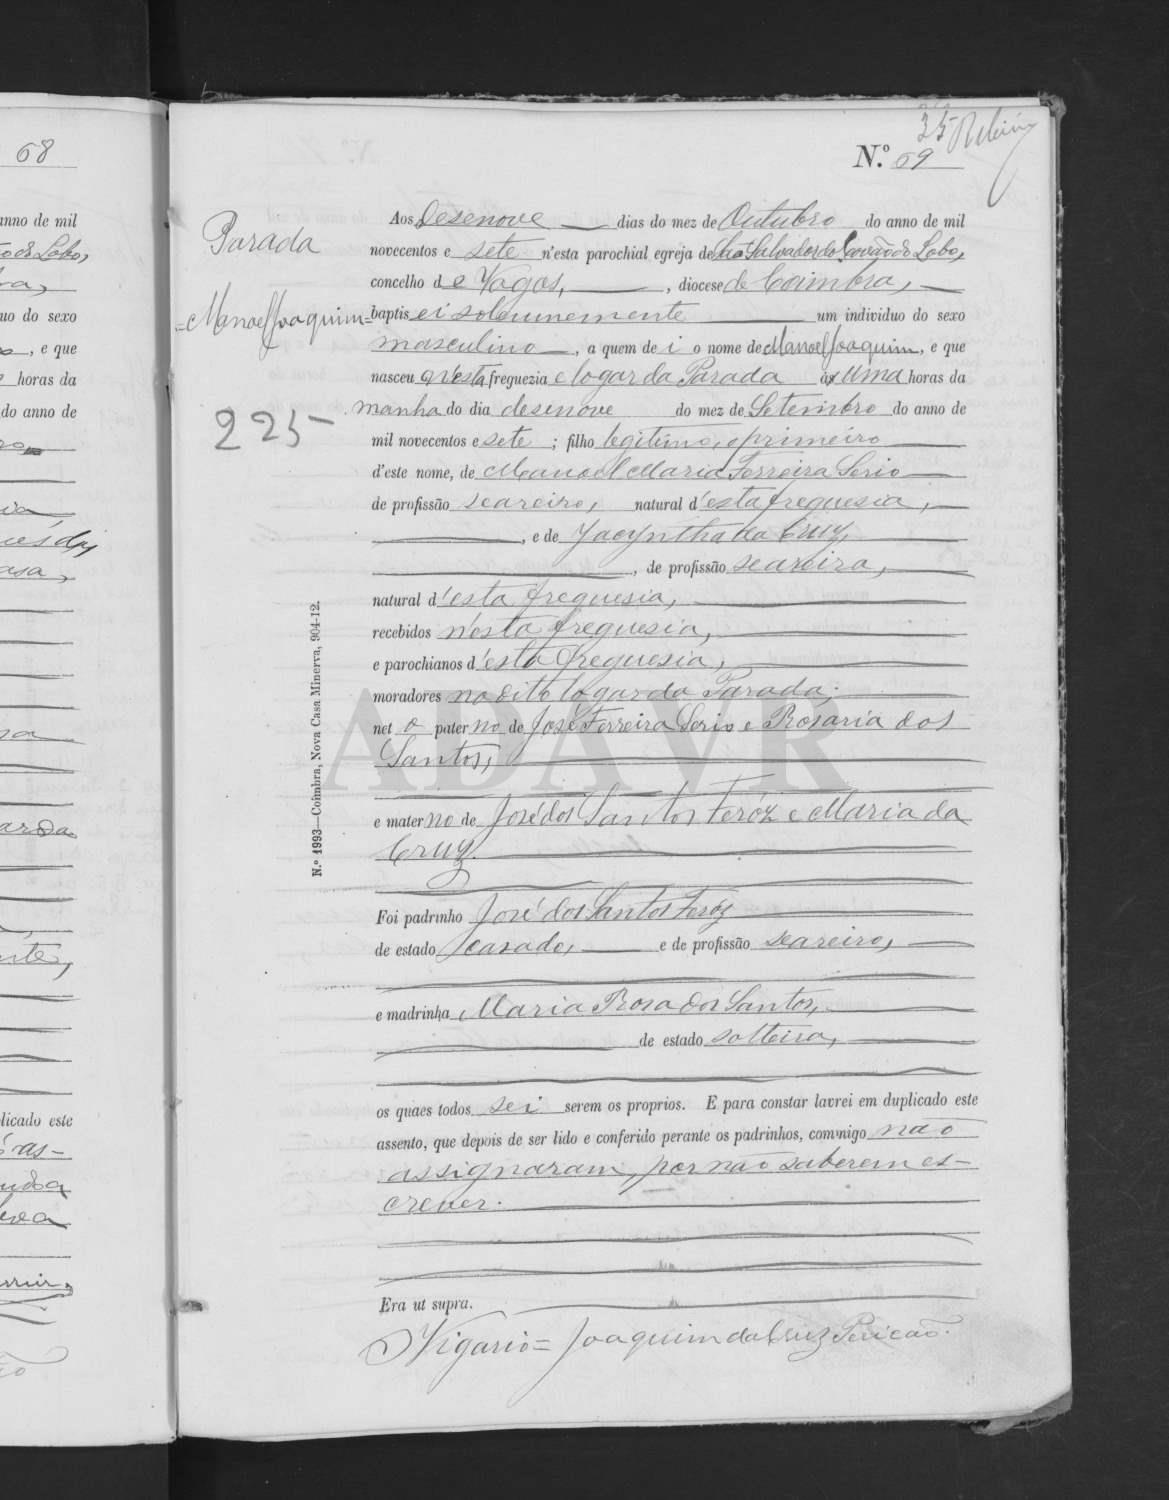 68
anno de mil
horas da
do anno de
licado este
35
N.º 69
Parada
= Manoel Joaquim =
225
Aos desenove dias do mez de Outubro do anno de mil
novecentos e sete n'esta parochial egreja de São Salvador do Covão do Lobo,
concelho de Vagos, , diocese de Coimbra,
baptisei solemnemente um individuo do sexo
masculino , a quem dei o nome de Manoel Joaquim , e que
nasceu n'esta freguezia e logar da Parada ás uma horas da
manhã do dia desenove do mez de Setembro do anno de
mil novecentos e sete ; filho legitimo, e primeiro
d'este nome, de Manoel Maria Ferreira Serio
de profissão seareiro, natural d'esta freguesia,
, e de Jacyntha da Cruz,
, de profissão seareira,
natural d'esta freguesia,
recebidos n'esta freguesia,
e parochianos d'esta freguesia,
moradores no dito logar da Parada;
neto paterno de José Ferreira Serio e Rosaria dos
Santos,
e materno de José dos Santos Feróz e Maria da
Cruz.
Foi padrinho José dos Santos Feróz
de estado casado, e de profissão seareiro,
e madrinha Maria Rosa dos Santos,
de estado solteira,
os quaes todos sei serem os proprios. E para constar lavrei em duplicado este
assento, que depois de ser lido e conferido perante os padrinhos, commigo não
assignaram, por não saberem es-
crever.
Era ut supra.
O Vigario = Joaquim da Cruz Pericão.
N.º 1993—Coimbra, Nova Casa Minerva, 904-12.
ADAVR